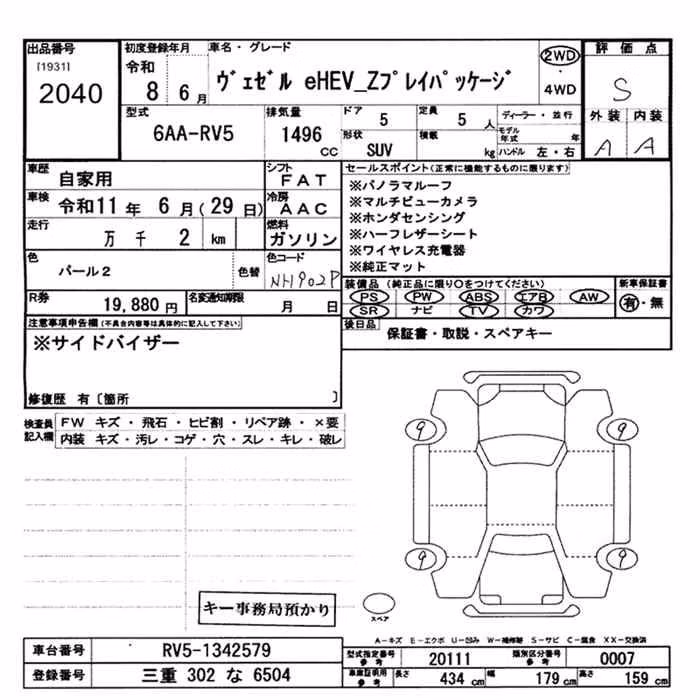 出品番号
[1931]
2040
初度登録年月
令和
8 6月
車名・グレード
ヴェゼル eHEV_Zプレイパッケージ
2WD
・
4WD
評価点
S
外装 内装
A A
型式
6AA-RV5
排気量
1496
cc
ドア
5
定員
5
人
ディーラー・並行
モデル年式
年
形状
SUV
積載
kg
ハンドル 左・右
車歴
自家用
シフト
FAT
車検
令和11年 6月(29日)
冷房
AAC
走行
万 千 2 km
燃料
ガソリン
色
パール2
色替
色コード
NH902P
R券
19,880円
名変通知期限
月 日
セールスポイント(正常に機能するものに限ります)
※パノラマルーフ
※マルチビューカメラ
※ホンダセンシング
※ハーフレザーシート
※ワイヤレス充電器
※純正マット
装備品(純正品に限り○をつけてください)
PS PW ABS エアB AW
SR ナビ TV カワ
新車保証書
有・無
後日品
保証書・取説・スペアキー
注意事項申告欄(不具合内容等は具体的に記入して下さい)
※サイドバイザー
修復歴 有〔箇所 〕
検査員記入欄
FW キズ・飛石・ヒビ割・リペア跡・×要
内装 キズ・汚レ・コゲ・穴・スレ・キレ・破レ
9 9
9 9
スペア
キー事務局預かり
A-キズ E-エクボ U-凹み W-補修跡 S-サビ C-腐食 XX-交換済
車台番号
RV5-1342579
登録番号
三重 302 な 6504
型式指定番号
参考
20111
類別区分番号
参考
0007
車庫証明用
参考
長さ
434 cm
幅
179 cm
高さ
159 cm